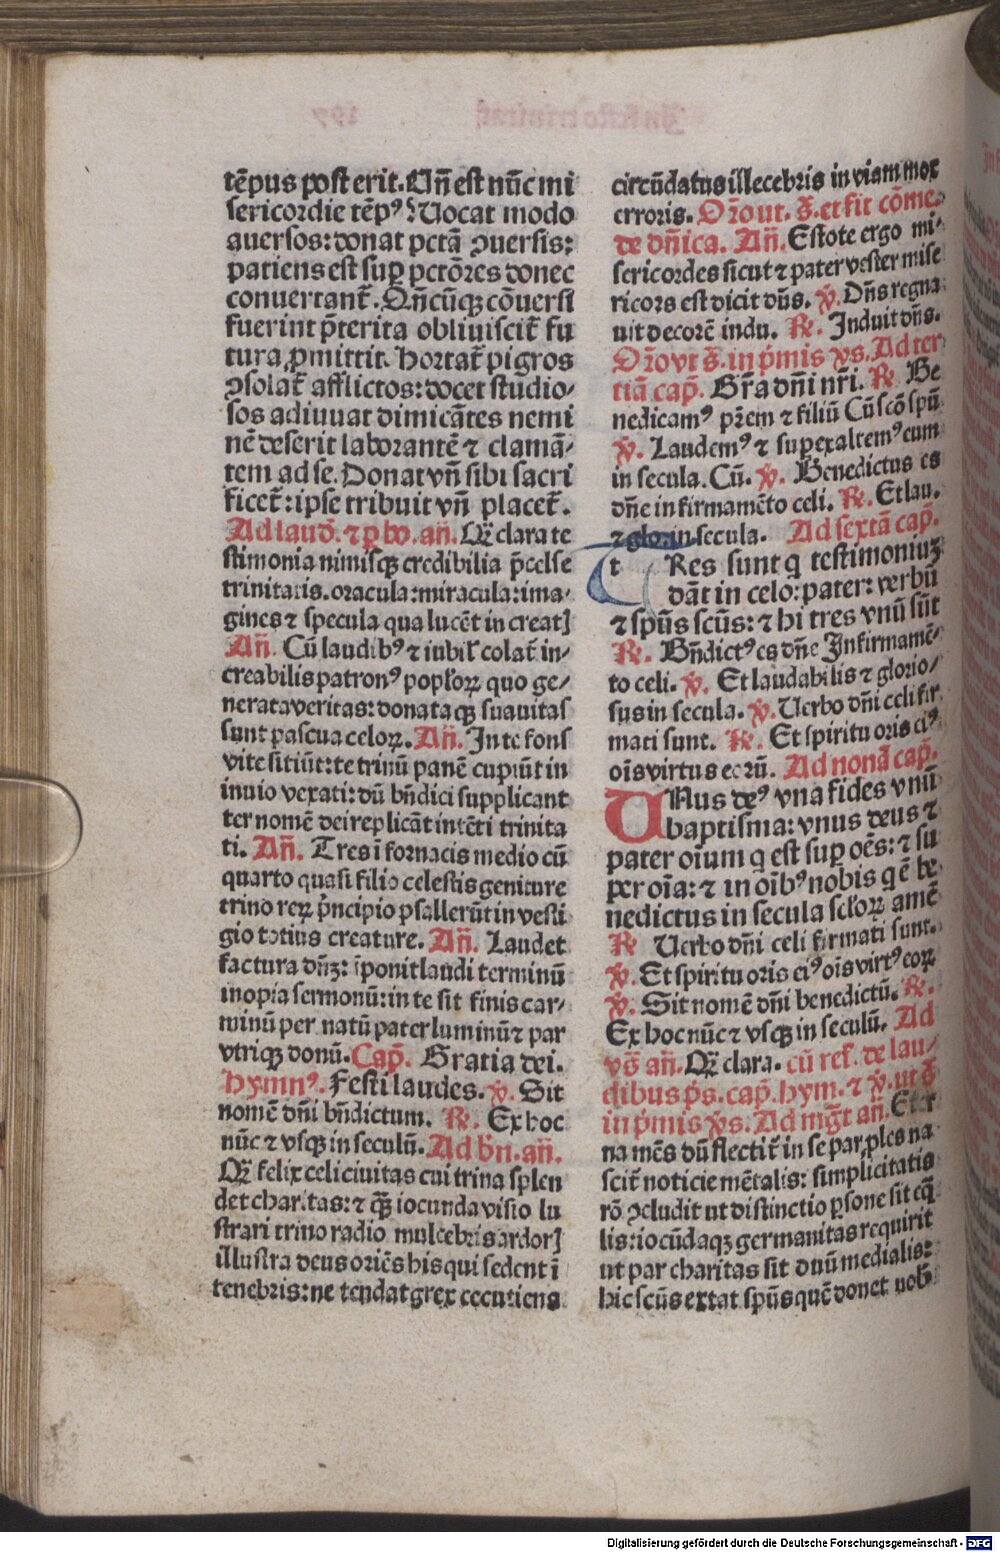 tēpus post erit. Qñ est nūc mi
sericordie tēpꝰ? Uocat modo
auersos: donat pctā ꝯuersis:
patiens est suꝑ pctōres donec
conuertant̄. Qñcūqꝫ cōuersi
fuerint p̄terita obliuiscit̄ fu
tura ꝓmittit. hortat̄ pigros
ꝯsolat̄ afflictos: docet studio⸗
sos adiuuat dimicātes nemi
nē deserit laborantē ⁊ clamā⸗
tem ad se. Donat vñ sibi sacri
ficet̄: ipse tribuit vñ placet̄.
Ad laud̄. ⁊ ꝑ ho. añ. Qꝫ clara te
stimonia nimisqꝫ credibilia p̄celse
trinitatis. oracula: miracula: ima⸗
gines ⁊ specula qua lucēt in creat]
Añ. Cū laudibꝰ ⁊ iubil' colat̄ in⸗
creabilis patronꝰ poploꝝ quo ge⸗
nerata veritas: donataqꝫ suauitas
sunt pascua celoꝝ. Añ. In te fons
vite sitiūt: te trinū panē cupiūt in
inuio vexati: dū bñdici supplicant
ter nomē dei replicāt intēti trinita
ti. Añ. Tres ī fornacis medio cū
quarto quasi filio celestis geniture
trino reꝝ p̄ncipio psallerūt in vesti
gio totius creature. Añ. Laudet
factura dñꝫ: īponit laudi terminū
inopia sermonū: in te sit finis car⸗
minū per natū pater luminū ⁊ par
vtriqꝫ donū. Cap̄. Gratia dei.
hymnꝰ. Festi laudes. ℣. Sit
nomē dñi bñdictum. ℟. Ex hoc
nūc ⁊ vsqꝫ in seculū. Ad bn. añ.
Qꝫ felix celi ciuitas cui trina splen
det charitas: ⁊ qꝫ iocunda visio lu
strari trino radio mulcebris ardor]
illustra deus oriēs his qui sedent ī
tenebris: ne tendat grex cecutiens
circūdatus illecebris in viam mox
erroris. Oro ut. s̄. et fit cōme.
de dñica. Añ. Estote ergo mi⸗
sericordes sicut ⁊ pater vester mise
ricors est dicit dñs. ℣. Dñs regna
uit decorē indu. ℟. Induit dñs.
Oro vt s̄. in p̄mis ꝟs. Ad ter
tiā cap̄. Gr̄a dñi nr̄i. ℟. Be
nedicamꝰ pr̄em ⁊ filiū Cū scō spū
℣. Laudemꝰ ⁊ superexaltemꝰ eum
in secula. Cū. ℣. Benedictus es
dñe in firmamēto celi. ℟. Et lau.
⁊ glo. in secula. Ad sextā cap̄.
t Res sunt q testimoniuꝫ
dāt in celo: pater: verbū
⁊ spūs scūs: ⁊ hi tres vnū sūt
℟. Bñdictꝰ es dñe In firmamē⸗
to celi. ℣. Et laudabilis ⁊ glorio⸗
sus in secula. ℣. Uerbo dñi celi fir
mati sunt. ℟. Et spiritu oris eiꝰ
oīs virtus eorū. Ad nonā cap̄.
UNus deꝰ vna fides vnū
baptisma: vnus deus ⁊
pater oīum q est suꝑ oēs: ⁊ su
per oīa: ⁊ in oībꝰ nobis q ē be
nedictus in secula scl'oꝝ amē
℟ Uerbo dñi celi firmati sunt.
℣. Et spiritu oris eiꝰ oīs virtꝰ eoꝝ
℣. Sit nomē dñi benedictū. ℟.
Ex hoc nūc ⁊ vsqꝫ in seculū. Ad
vs̄ añ. Qꝫ clara. cū rel'. de lau⸗
dibus p̄s. cap̄. hym. ⁊ ℣. ut s̄
in p̄mis ꝟs. Ad mgt̄ añ. Eter
na mēs dū flectit̄ in se par, ples na
scit̄ noticie mētalis: simplicitatis
rō ꝯcludit ut distinctio ꝑsone sit eq̄
lis: iocūdaqꝫ germanitas requirit
ut par charitas sit duū medialis:
hic scūs extat spūs quē donet nob̄
Digitalisierung gefördert durch die Deutsche Forschungsgemeinschaft - DFG